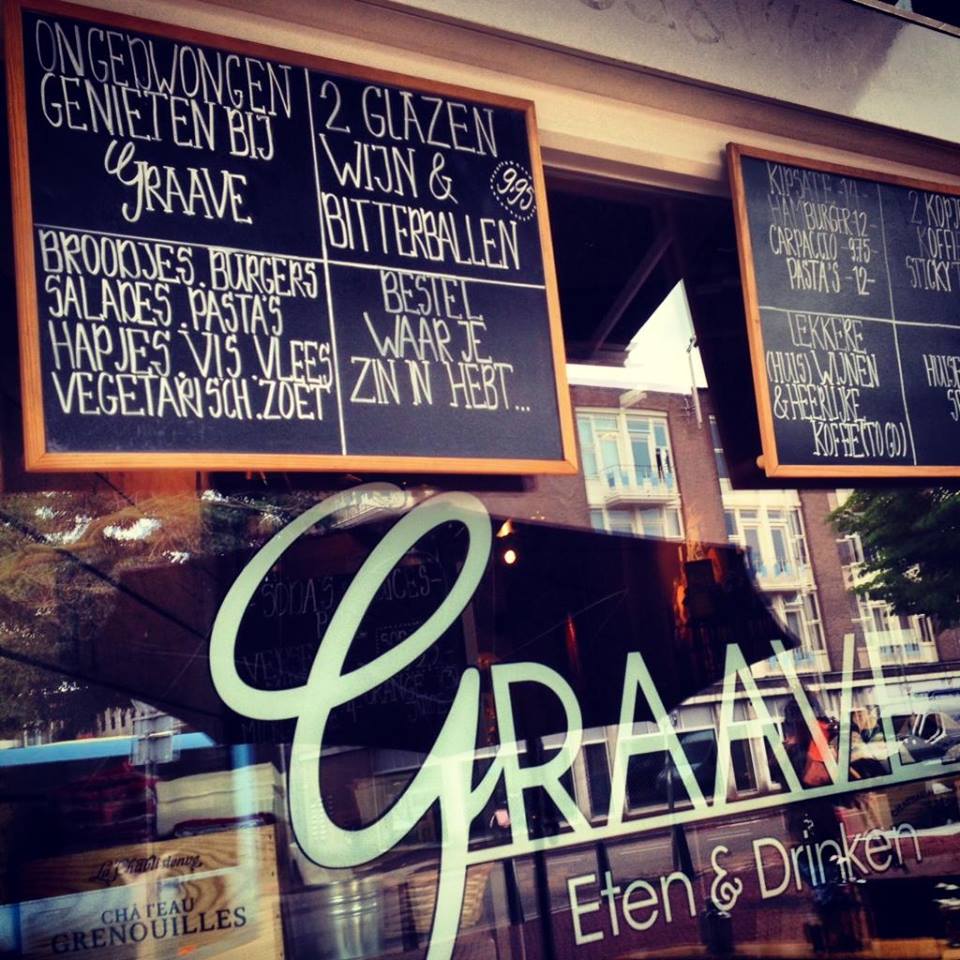 ONGEDWONGEN
GENIETEN BIJ
GRAAVE
2 GLAZEN
WIJN &
BITTERBALLEN
9.95
BROODJES. BURGERS
SALADES. PASTA'S
HAPJES. VIS. VLEES
VEGETARISCH. ZOET
BESTEL
WAAR JE
ZIN IN HEBT...
HAMBURGER 12-
CARPACCIO - 9.75-
PASTA'S - 12-
2 KOPJ
KOFFI
STICKY T
LEKKERE
(HUIS) WIJNEN
& HEERLIJKE
KOFFIE (TO GO)
GRAAVE
Eten & Drinken
CHÂTEAU
GRENOUILLES